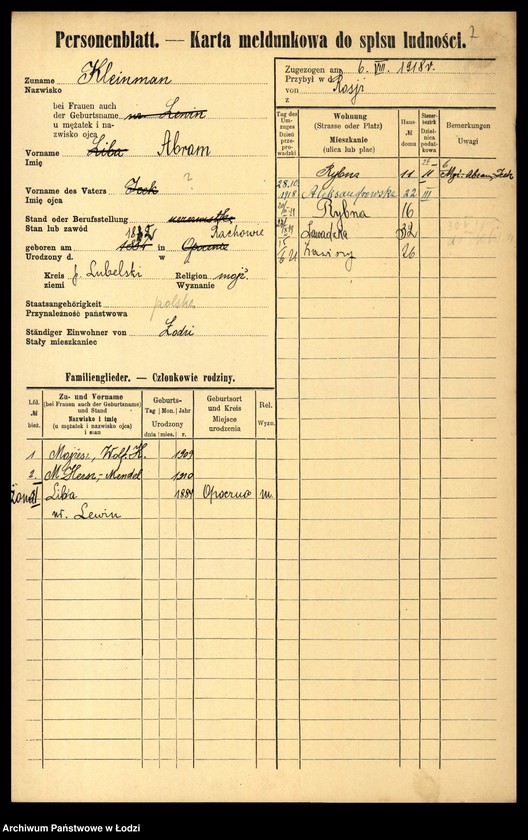 Personenblatt. — Karta meldunkowa do spisu ludności. 7
Zuname Kleinman
Nazwisko
bei Frauen auch
der Geburtsname Lewin
u mężatek i na-
zwisko ojca
Vorname Liba Abram
Imię
Vorname des Vaters Icek ?
Imię ojca
Stand oder Berufsstellung
Stan lub zawód Rachowie
geboren am 1884 in Opoczno
Urodzony d. w
Kreis Lubelski Religion mojż.
ziemi Wyznanie
Staatsangehörigkeit polska
Przynależność państwowa
Ständiger Einwohner von Łodzi
Stały mieszkaniec
Zugezogen am 6. VIII. 1918 r.
Przybył w d
von Rosji
z
Tag des Um-zuges Dzień prze-prowadzki
Wohnung
(Strasse oder Platz)
Mieszkanie
(ulica lub plac)
Haus-№ domu
Steuer-bezirk Dzielnica podat-kowa
Bemerkungen
Uwagi
Rybna 11 II Mąż-Abram-Icek
28.10. 1918 Aleksandrowska 22 III
Rybna 16
Zawadzka 32
26
Familienglieder. — Członkowie rodziny.
Lfd. № bież.
Zu- und Vorname
(bei Frauen auch der Geburtsname)
und Stand
Nazwisko i imię
(u mężatek i nazwisko ojca)
i stan
Geburts-
Tag Mon. Jahr
Urodzony
dnia mies. r.
Geburtsort
und Kreis
Miejsce
urodzenia
Rel.
Wyzn.
1 Mojżesz, Wolf. H. 1909
2. M Hersz,-Mendel 1910
żona Liba 1884 Opoczno m.
ur. Lewin
Archiwum Państwowe w Łodzi